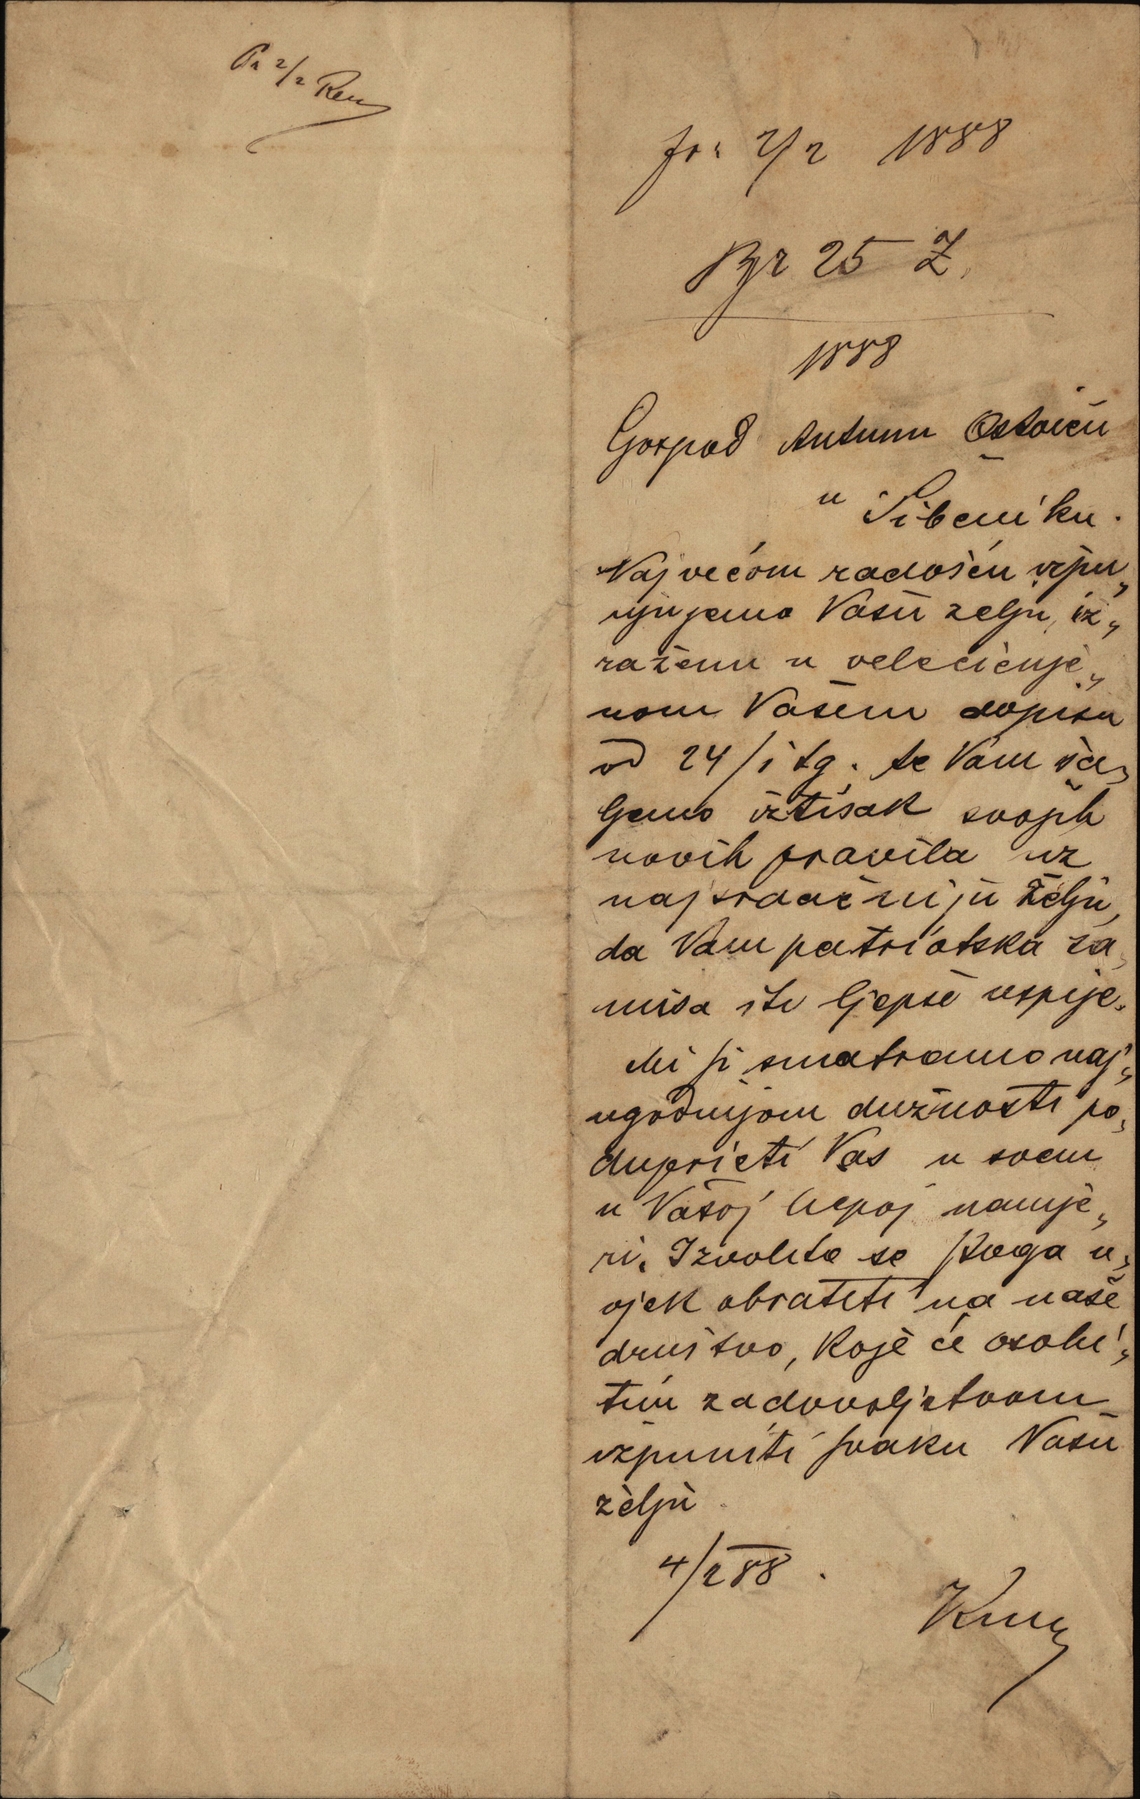 Pr 2/2
Pr. 2/2 1888
Br 25 Z.
1888
Gospod Antunu Ostoiću
u Šibeniku.
Najvećom radošću izpu„
njujemo Vašu želju, iz„
raženu u velecienje„
nom Vašem dopisu
od 24/1 tg. te Vam ša„
ljemo iztisak svojih
novih pravila uz
najsrdačniju želju,
da Vam patriotska za„
misa što ljepše uspije.
Mi ji smatramo naj„
ugodnijom dužnosti po„
duprieti Vas u svem
u Vašoj liepoj namje„
ri. Izvolite se stoga u„
vjek obratiti na naše
društvo, koje će osobi„
tim zadovoljstvom
izpuniti svaku Vašu
želju
4/2 88.